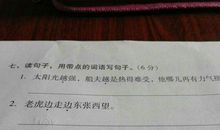 七、读句子，用带点的词语写句子。（6分）
1. 太阳光越强，船夫越是热得难受，他哪儿再有力气
2. 老虎边走边东张西望。